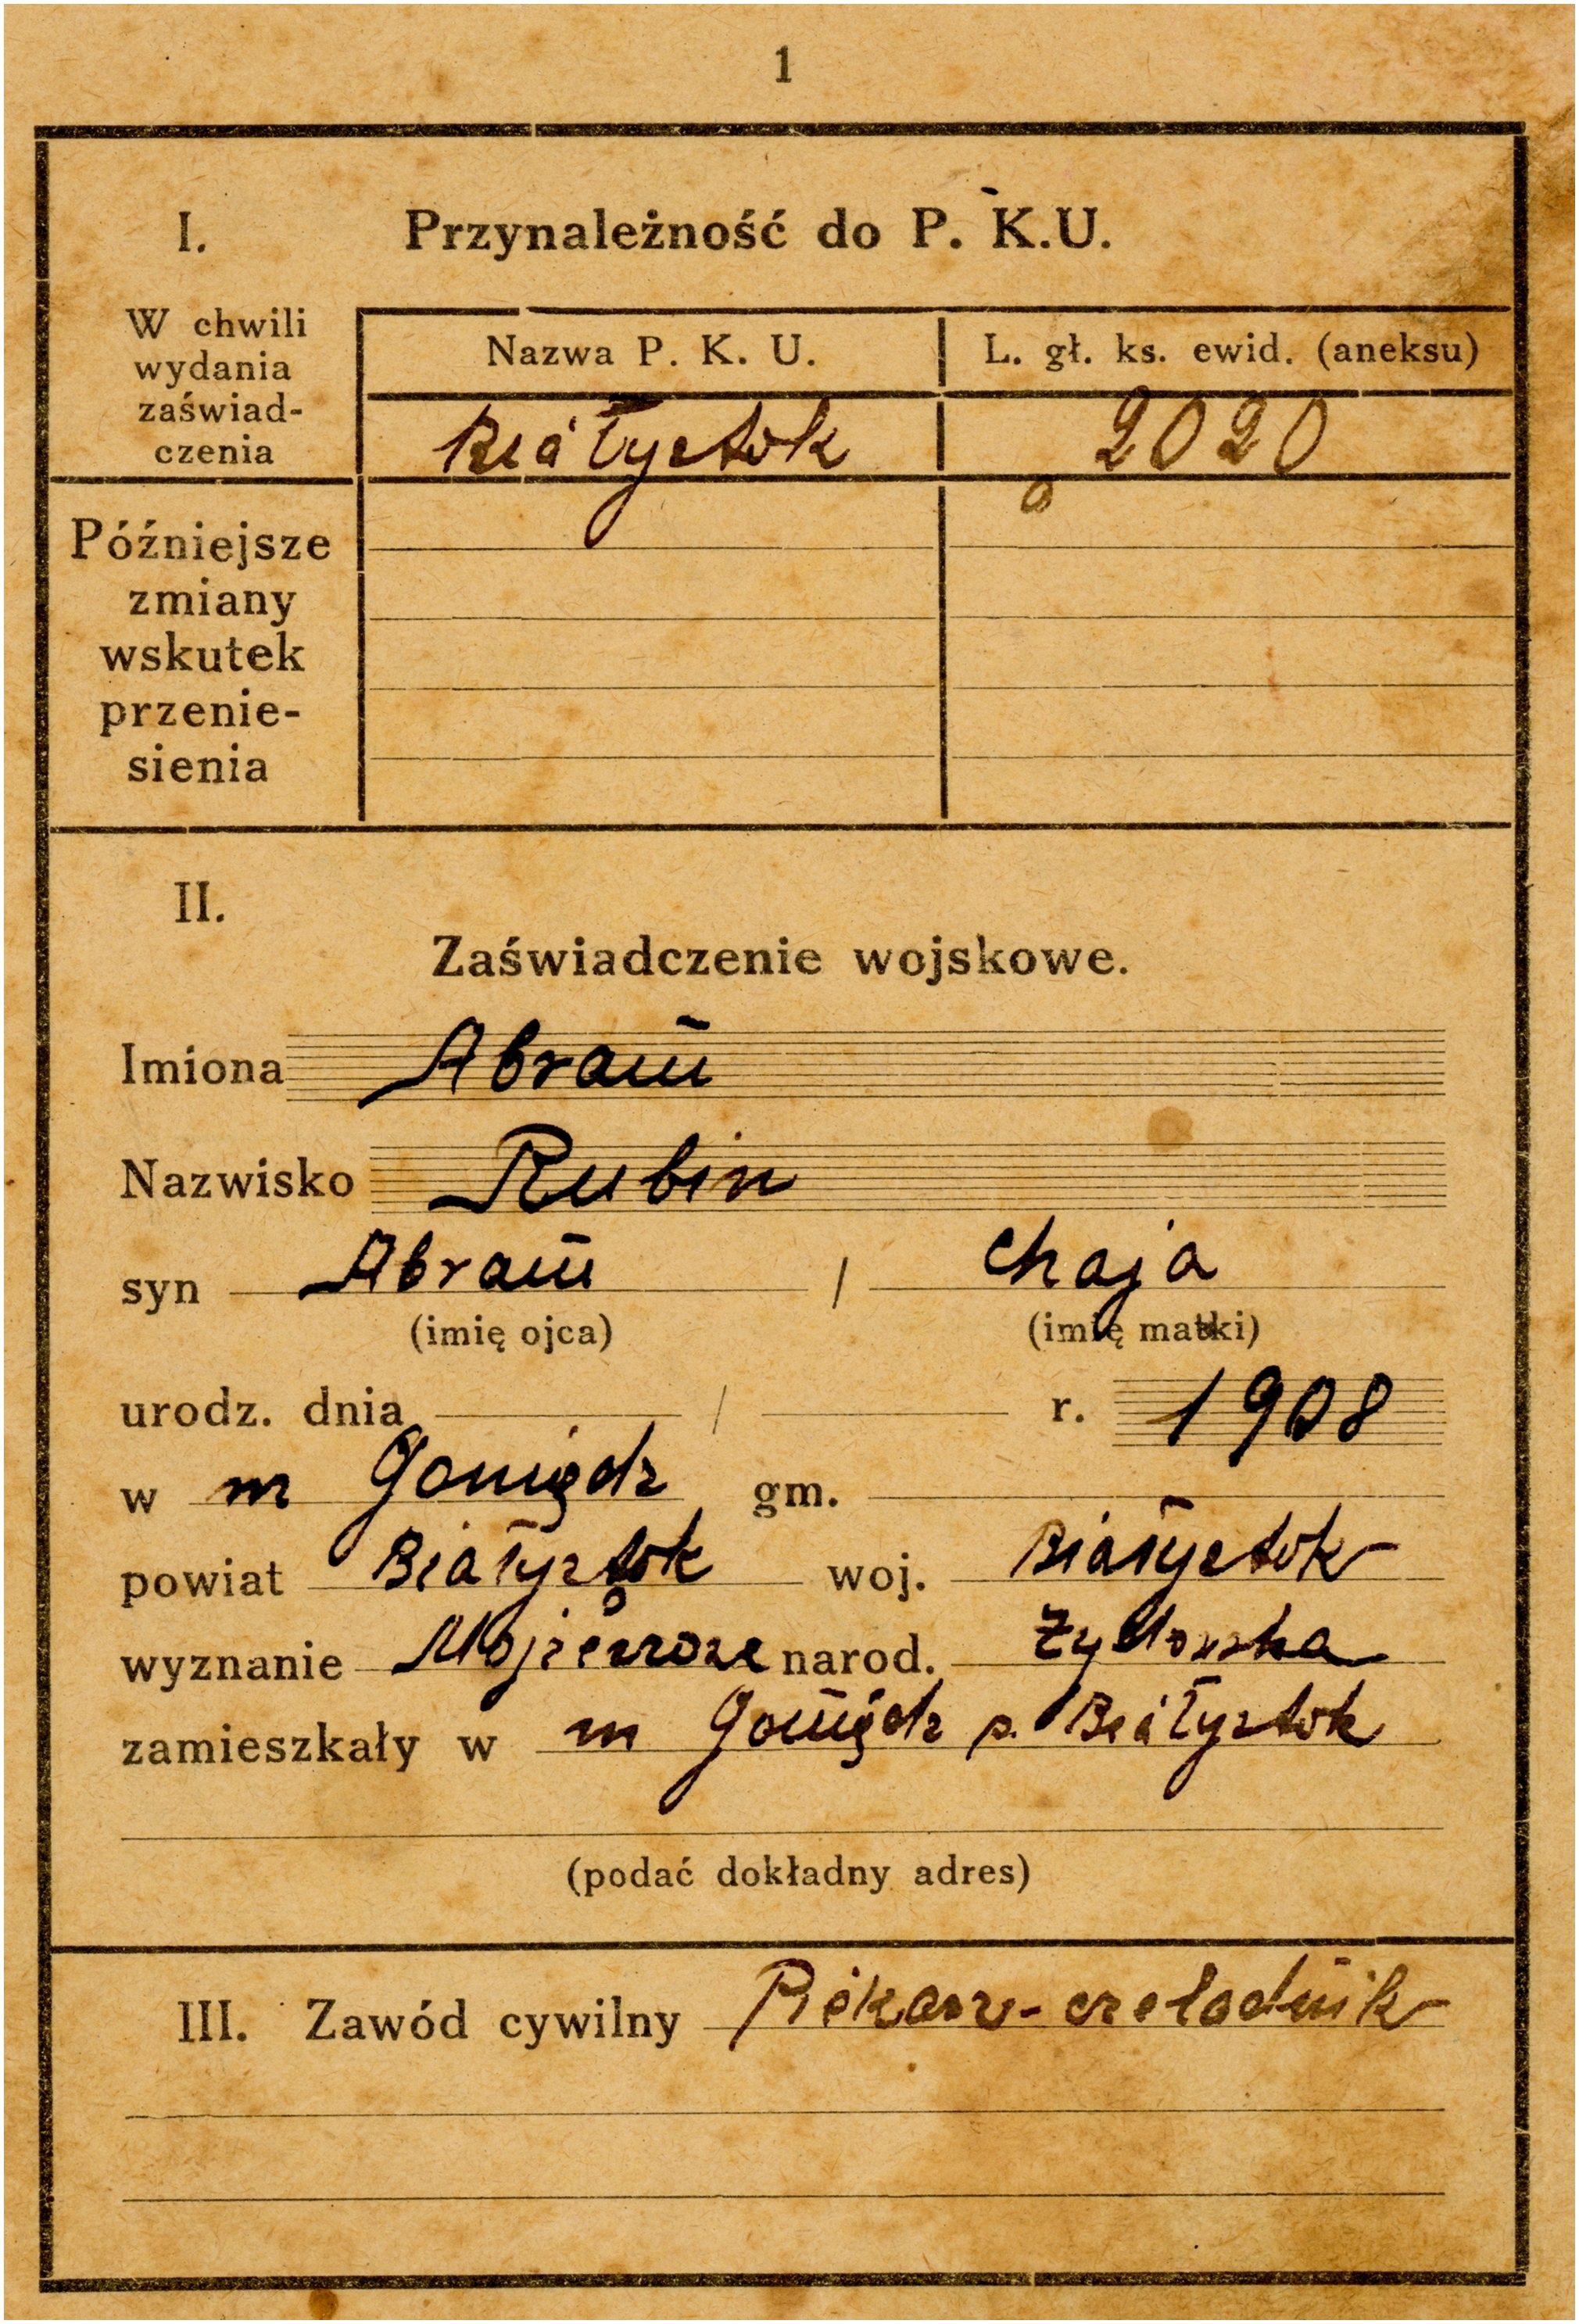 1
I. Przynależność do P. K.U.
W chwili
wydania
zaświad-
czenia
Nazwa P. K. U.
L. gł. ks. ewid. (aneksu)
Białystok
2020
Późniejsze
zmiany
wskutek
przenie-
sienia
II.
Zaświadczenie wojskowe.
Imiona Abram
Nazwisko Rubin
syn Abram / Chaja
(imię ojca) (imię matki)
urodz. dnia / r. 1908
w m Goniądz gm.
powiat Białystok woj. Białystok
wyznanie Mojżeszowe narod. Żydowska
zamieszkały w m Goniądz p. Białystok
(podać dokładny adres)
III. Zawód cywilny Piekarz-czeladnik